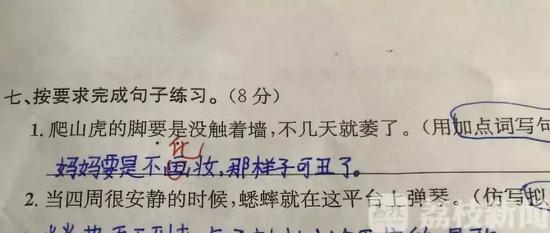 七、按要求完成句子练习。(8分)
1. 爬山虎的脚要是没触着墙,不几天就萎了。(用加点词写句
化
妈妈要是不画妆,那样子可丑了。
2. 当四周很安静的时候,蟋蟀就在这平台上弹琴。(仿写拟
荔枝新闻